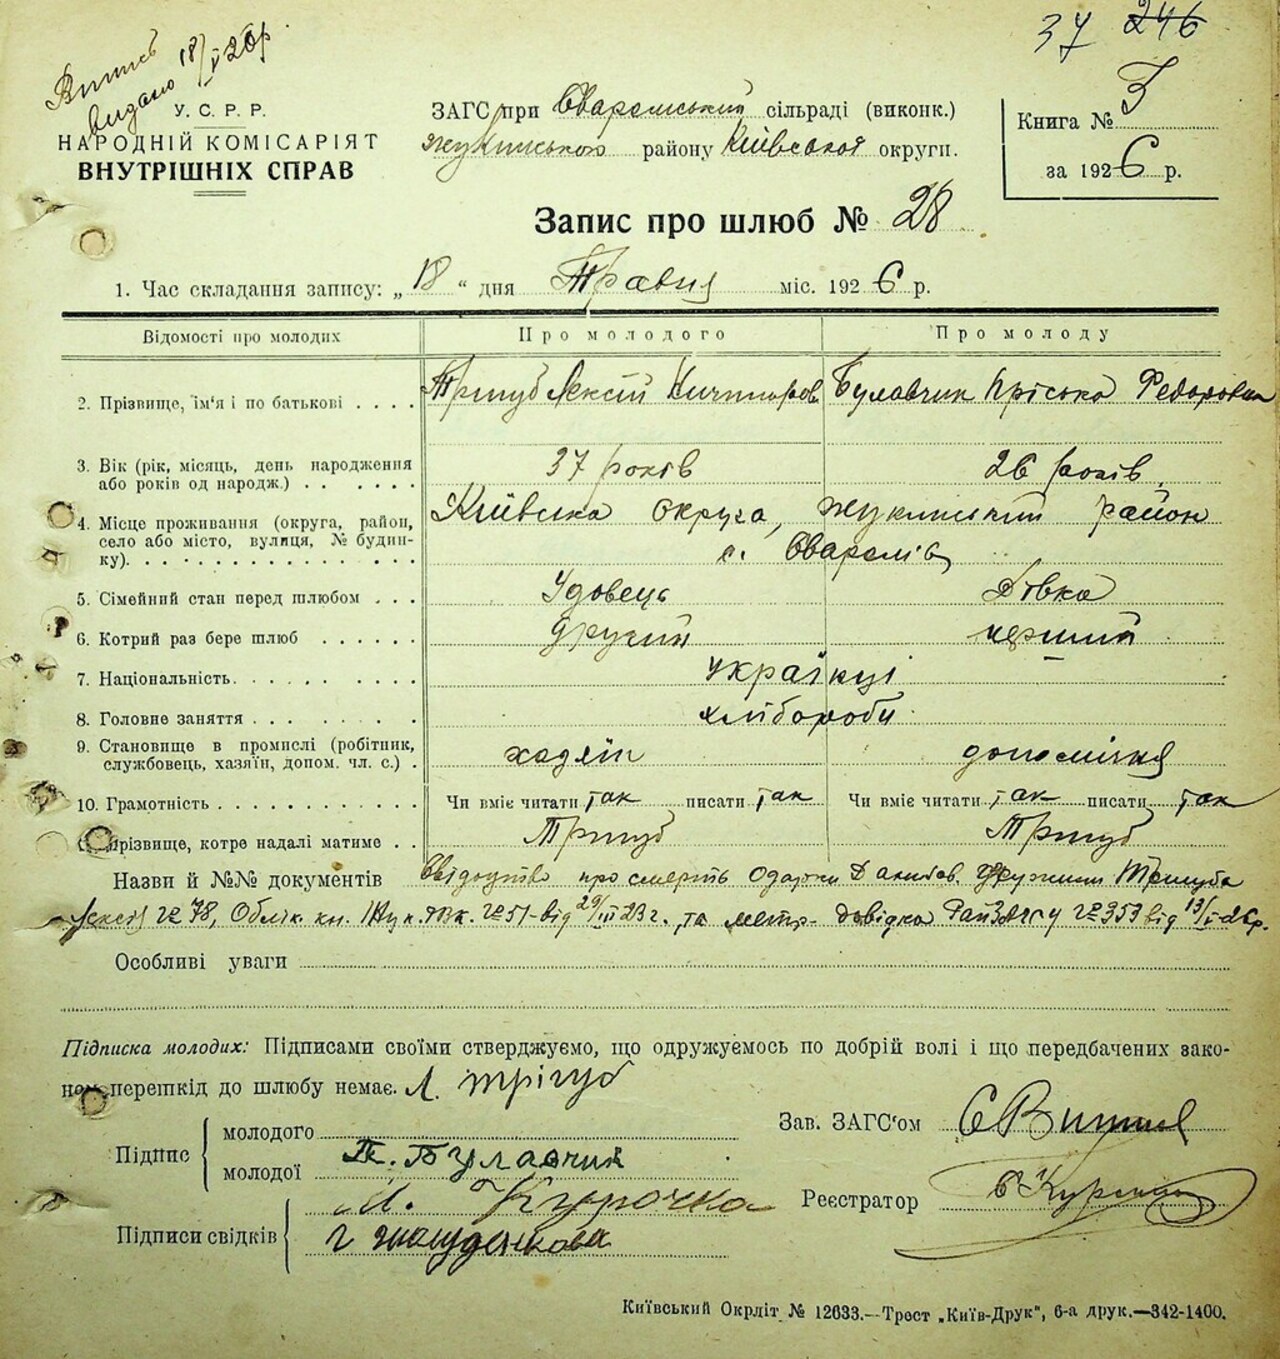 37 246
Випись
видано 18/V 26р
У. С. Р. Р.
НАРОДНІЙ КОМІСАРІЯТ
ВНУТРІШНІХ СПРАВ
ЗАГС при Сваромський сільраді (виконк.)
Жукинського району Київської округи.
Книга № 3
за 1926 р.
Запис про шлюб № 28
1. Час складання запису: „18“ дня Травня міс. 1926 р.
Відомості про молодих Про молодого Про молоду
2. Прізвище, ім'я і по батькові . . . . Тригуб Лексій Ничипоров. Булавчик Пріська Федоровна
3. Вік (рік, місяць, день народження
або років од народж.) . . . . . . 37 років 26 років
4. Місце проживання (округа, район,
село або місто, вулиця, № будин-
ку). . . . . . . . . . . . . . Київська округа, Жукинський район
с. Сваромʼє
5. Сімейний стан перед шлюбом . . . Удовець Дівка
6. Котрий раз бере шлюб . . . . . . другий перший
7. Національність. . . . . . . . . . українці
8. Головне заняття . . . . . . . . . хлібороби
9. Становище в промислі (робітник,
службовець, хазяїн, допом. чл. с.) . хазяїн допомічня
10. Грамотність . . . . . . . . . . . Чи вміє читати так писати так Чи вміє читати так писати так
Прізвище, котре надалі матиме . . Тригуб Тригуб
Назви й №№ документів Свідоцтво про смерть Одарки Данилов. дружини Тригуба
Лексія № 78, Облік. кн. Жук. № 51 від 29/III 23 г., та метр. довідка РайЗАГСу № 353 від 13/V-26р.
Особливі уваги
Підписка молодих: Підписами своїми стверджуємо, що одружуємось по добрій волі і що передбачених зако-
ном перешкід до шлюбу немає. Л. Трігуб
Підпис
молодого
молодої П. Булавчик
Підписи свідків
Л. Курочка
Зав. ЗАГС'ом
Реєстратор
Київський Окрліт № 12633.—Трест „Київ-Друк“, 6-а друк.—342-1400.